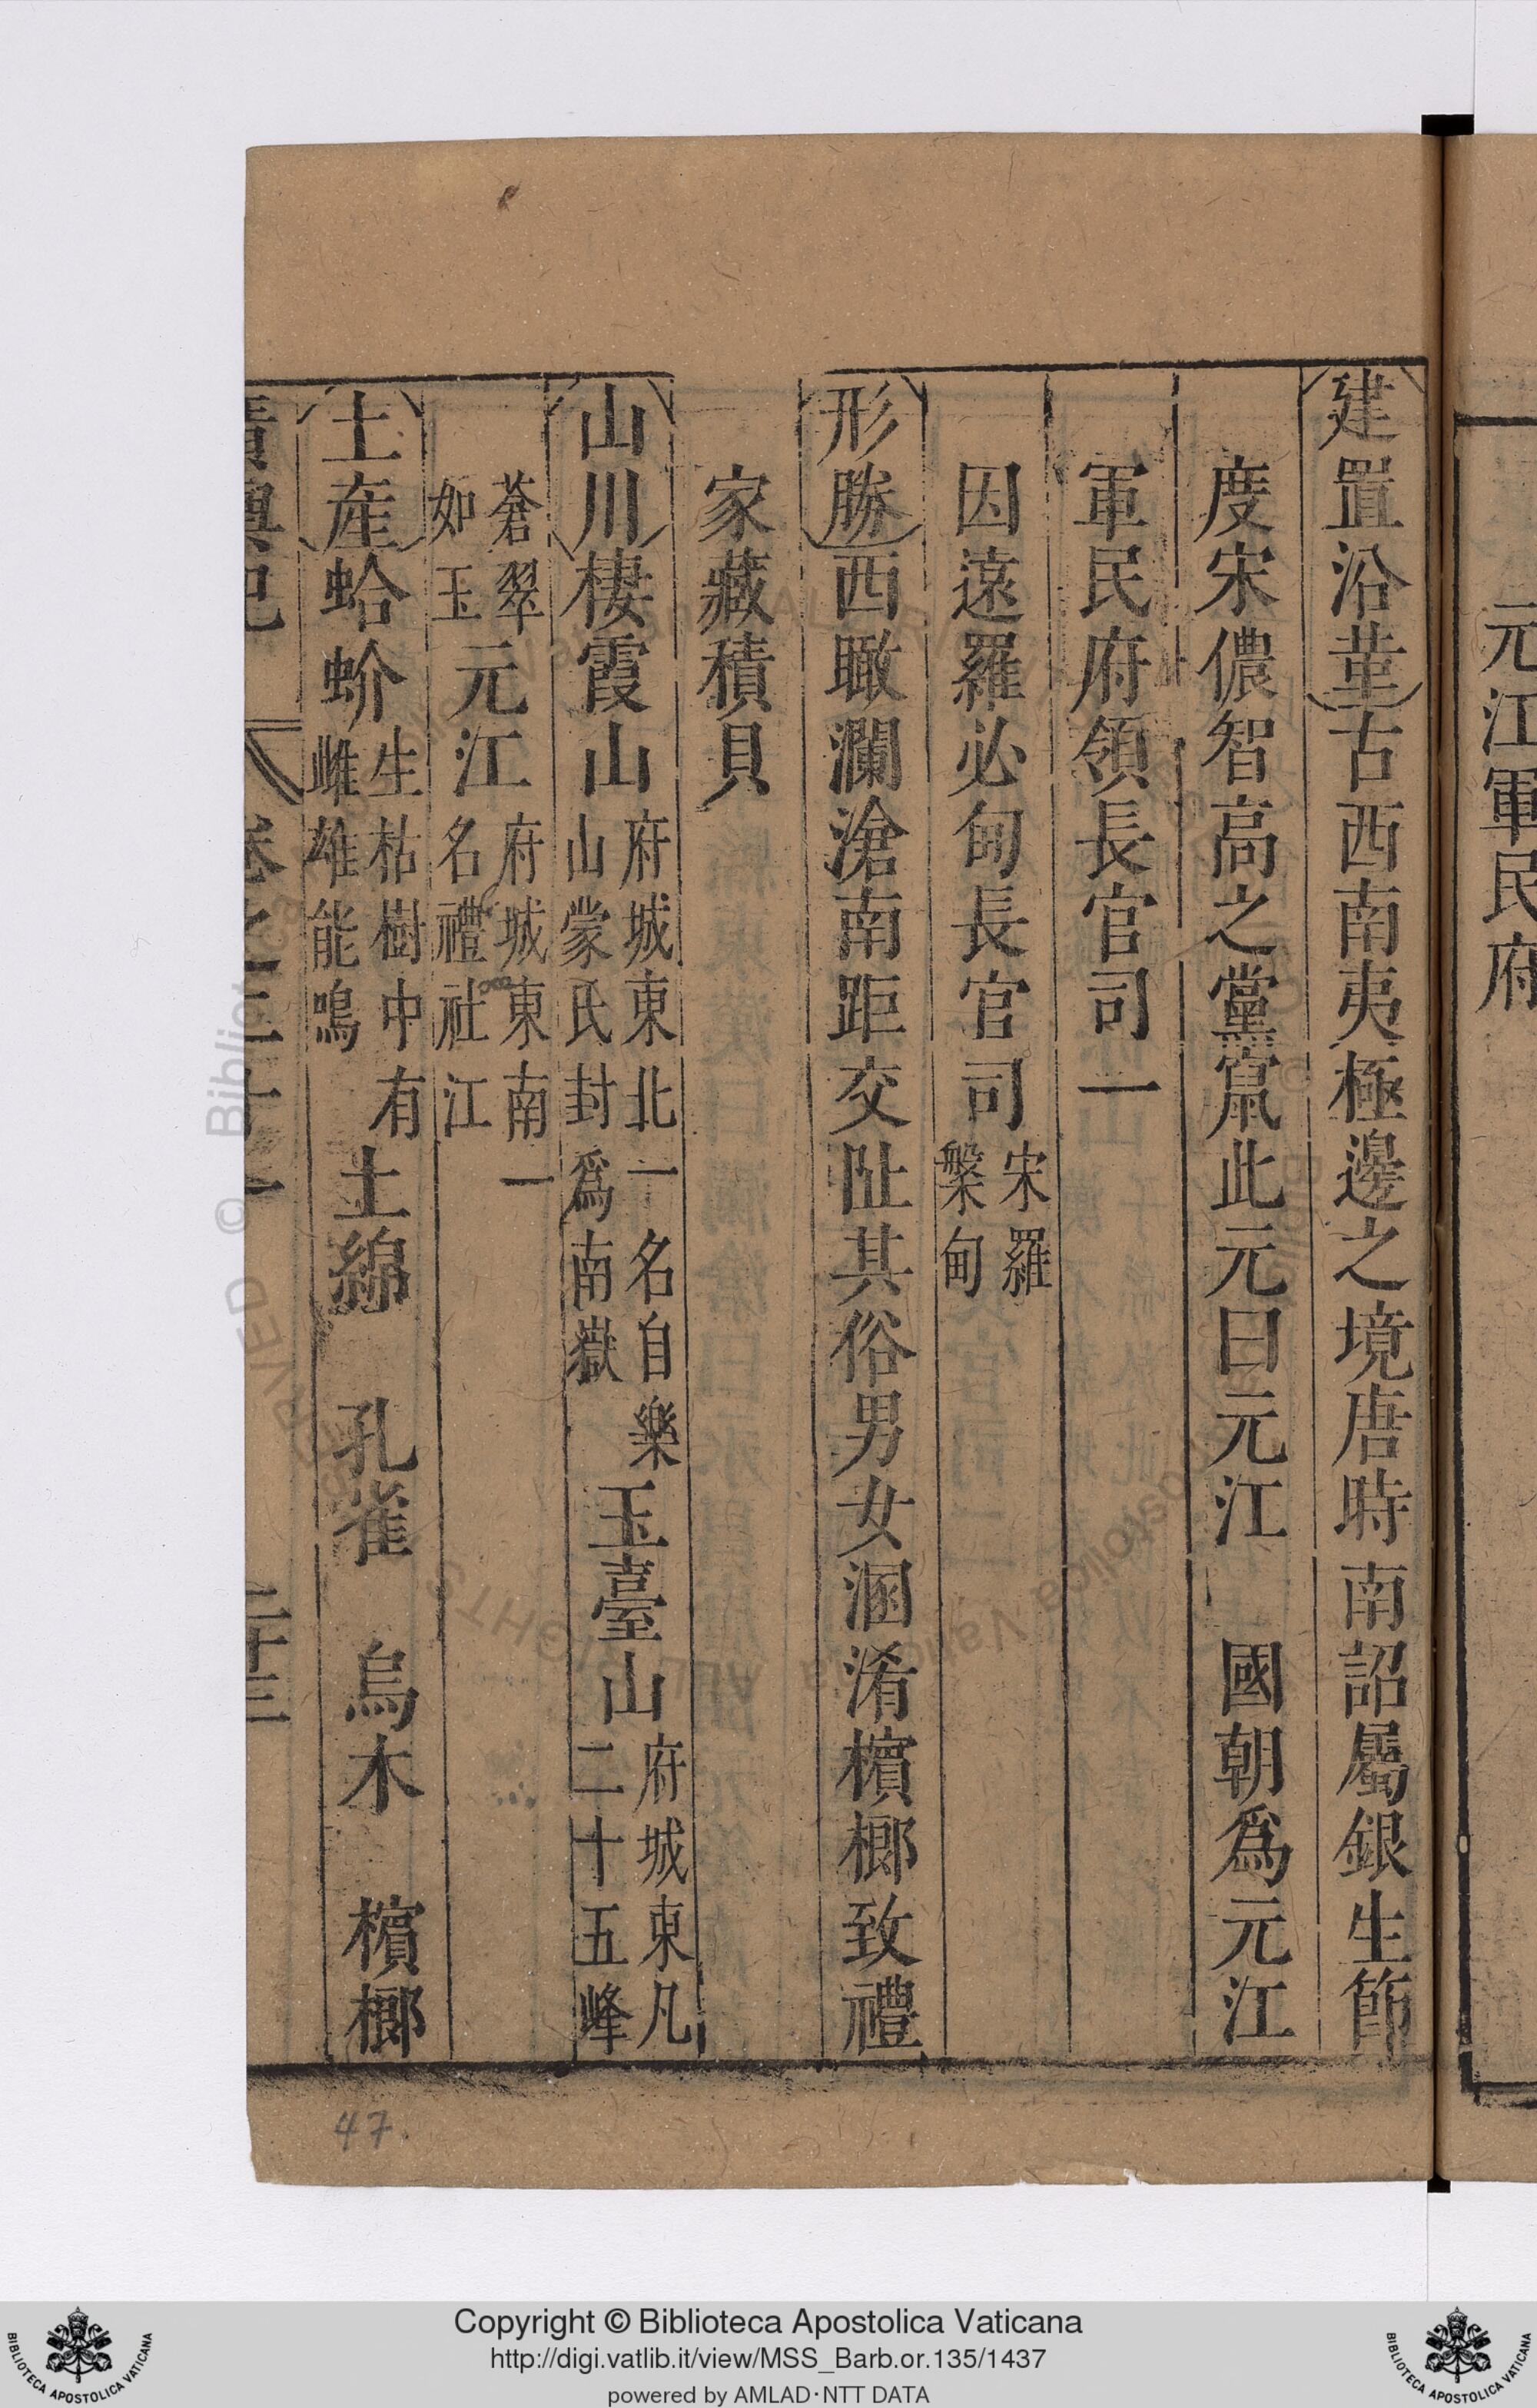 元江軍民府
建置沿革古西南夷極邊之境唐時南詔屬銀生節
度宋儂智高之黨竄此元曰元江　國朝爲元江
軍民府領長官司一
因遠羅必甸長官司宋羅槃甸
形勝西瞰瀾滄南距交阯其俗男女溷淆檳榔致禮
家藏積貝
山川棲霞山府城東北一名自樂山蒙氏封爲南嶽　玉臺山府城東凡二十五峰
蒼翠如玉元江府城東南一名禮社江
土産蛤蚧生枯樹中有雌雄能鳴　土綿　孔雀　烏木　檳榔
廣輿記　卷之二十一　二十三
47
Copyright © Biblioteca Apostolica Vaticana
http://digi.vatlib.it/view/MSS_Barb.or.135/1437
powered by AMLAD·NTT DATA
BIBLIOTECA APOSTOLICA VATICANA
BIBLIOTECA APOSTOLICA VATICANA